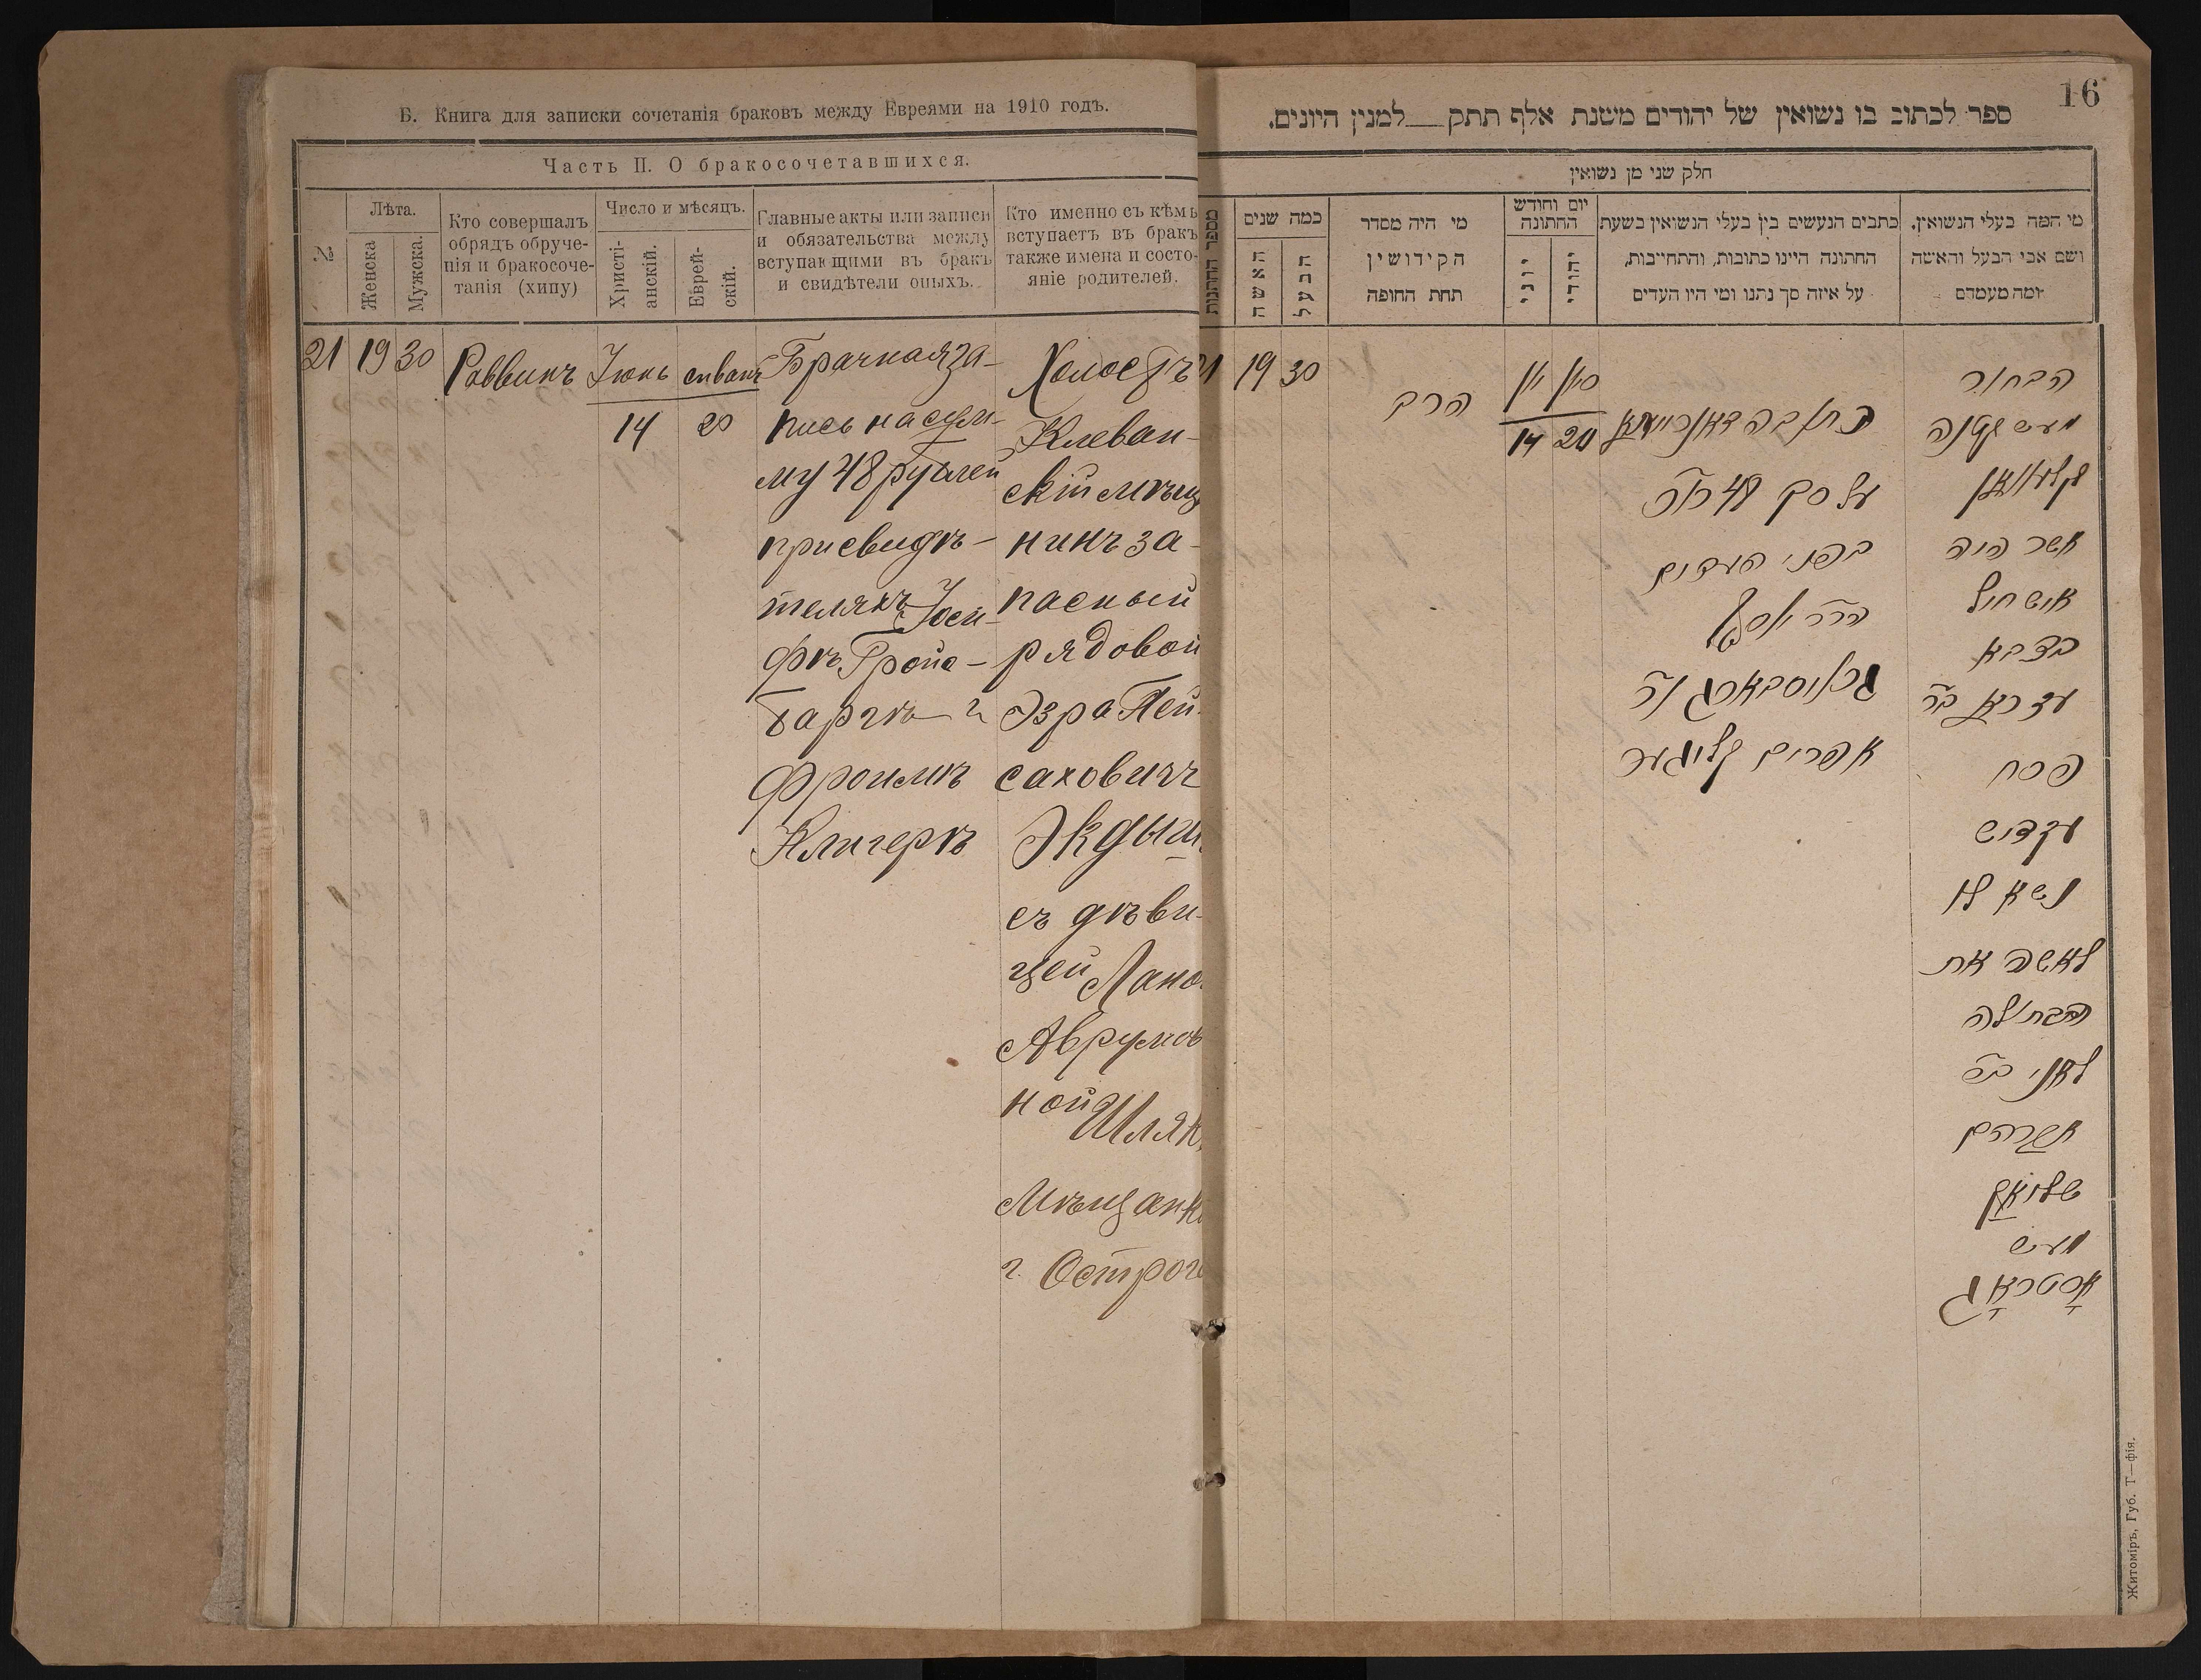 Б. Книга для записки сочетанія браковъ между Евреями на 1910 годъ.
Часть II. О бракосочетавшихся.
№
Лѣта.
Женска
Мужска.
Кто совершалъ
обрядъ обруче-
нія и бракосоче-
танія (хипу)
Число и мѣсяцъ.
Христі-
анскій.
Еврей-
скій.
Главные акты или записи
и обязательства между
вступающими въ бракъ
и свидѣтели оныхъ.
Кто именно съ кѣмъ
вступаетъ въ бракъ
также имена и состо-
яніе родителей.
21 19 30 Раввинъ Іюнь сиванъ
14 20
Брачная за-
пись на сум-
му 48 рублей
при свидѣ-
теляхъ Іоси-
фѣ Гройс-
баргѣ и
Фроимѣ
Клигерѣ
Холостъ
Клеван-
скій мѣща
нинъ за-
пасный
рядовой
Эзра Пей-
саховичъ
Экдыш
съ дѣви-
цей Ланой
Аврумов
ной Шляк
Мѣщанк
г. Острог
16
ספר לכתוב בו נשואין של יהודים משנת אלף תתק למנין היונים.
חלק שני מן נשואין
מספר החתנות
כמה שנים
האשה
הבעל
מי היה מסדר
הקידושין
תחת החופה
יום וחודש
החתונה
יוני
יהודי
כתבים הנעשים בין בעלי הנשואין בשעת
החתונה היינו כתובות, והתחייבות,
על איזה סך נתנו ומי היו העדים
מי המה בעלי הנשואין.
ושם אבי הבעל והאשה
ומה מעמדם
21 19 30
הרב
יוני סיון
14 20
כתובה דאורייתא
על סך 48 רוכ
בפני העדים
הרר יוסף
גרויסבארג ור
אפרים קליגער
הבחור
מעשטשנה
קלעוואן
אשר היה
איש חיל
בצבא
עזרא בר
פסח
עקדיש
נשא לו
לאשה את
הבתולה
לאני בר
אברהם
שליאק
מעיש
אָסטראָג
Житоміръ, Губ. Т—фія.